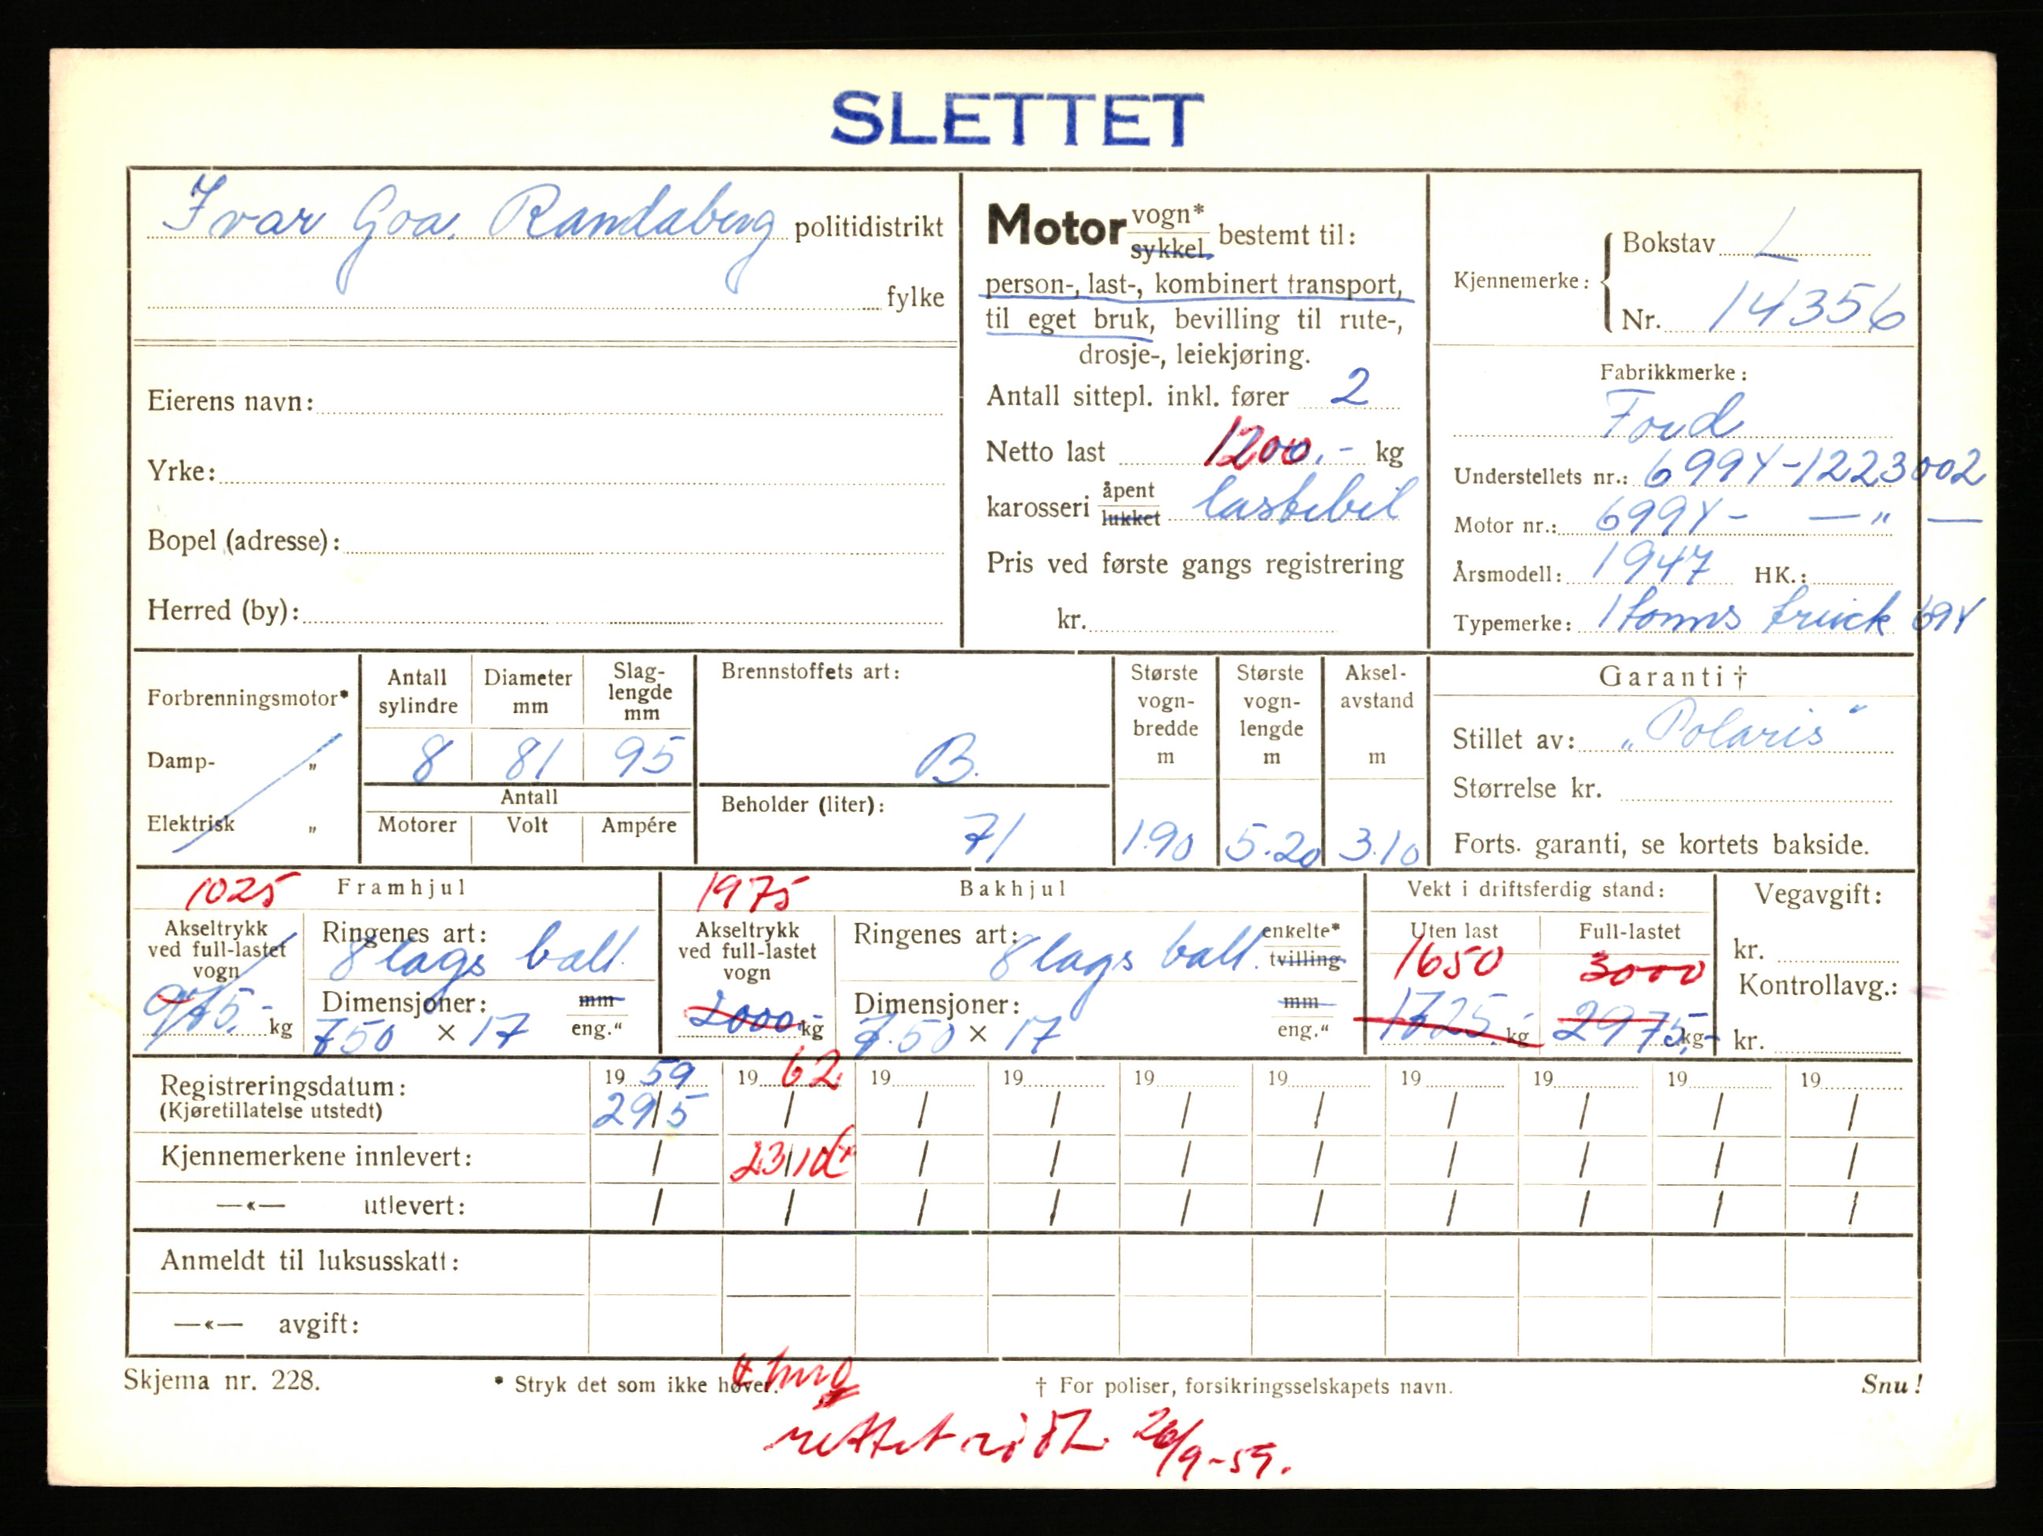 SLETTET
Ivar Goa. Randaberg politidistrikt
fylke
Eierens navn:
Yrke:
Bopel (adresse):
Herred (by):
Motor vogn* sykkel. bestemt til:
person-, last-, kombinert transport,
til eget bruk, bevilling til rute-,
drosje-, leiekjøring.
Antall sittepl. inkl. fører 2
Netto last 1200.- kg
karosseri åpent lukket lastebil
Pris ved første gangs registrering
kr.
Kjennemerke: Bokstav L
Nr. 14356
Fabrikkmerke:
Ford
Understellets nr.: 699Y-1223002
Motor nr.: 699Y- — " —
Årsmodell: 1947 HK.:
Typemerke: 1 tonns truck 69Y
Forbrenningsmotor*
Damp- "
Elektrisk "
Antall sylindre Diameter mm Slaglengde mm
8 81 95
Antall
Motorer Volt Ampére
Brennstoffets art:
B.
Beholder (liter):
71
Største vogn-bredde m 1.90
Største vogn-lengde m 5.20
Aksel-avstand m 3.10
Garanti †
Stillet av: „Polaris"
Størrelse kr.
Forts. garanti, se kortets bakside.
1025 Framhjul
Akseltrykk ved full-lastet vogn
975.- kg
Ringenes art: 8 lags ball.
Dimensjoner: mm
750 × 17 eng."
1975 Bakhjul
Akseltrykk ved full-lastet vogn
2000.- kg
Ringenes art: 8 lags ball. enkelte* tvilling
Dimensjoner: mm
7.50 × 17 eng."
Vekt i driftsferdig stand:
Uten last Full-lastet
1650 3000
1725.- kg 2975,- kg
Vegavgift:
kr.
Kontrollavg.:
kr.
Registreringsdatum: 19 59 19 62 19 19 19 19 19 19 19 19
(Kjøretillatelse utstedt) 29/5 / / / / / / / / /
Kjennemerkene innlevert: / 23/10 / / / / / / / /
—«— utlevert: / / / / / / / / / /
Anmeldt til luksusskatt:
—«— avgift:
Skjema nr. 228. * Stryk det som ikke høver. † For poliser, forsikringsselskapets navn. Snu!
rettet rødt 26/9-59.